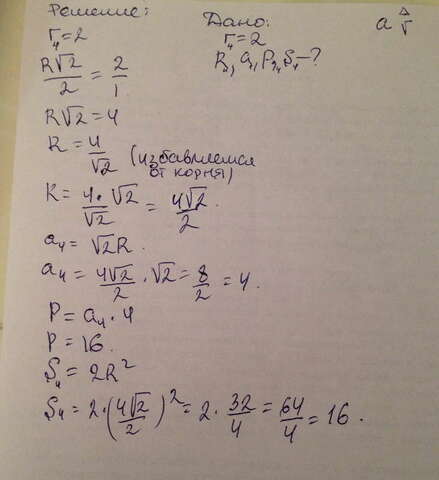 Решение:
Дано:
a △ r
r₄=2
r₄=2
R, a₄, P₄, S₄-?
R√2/2 = 2/1
R√2=4
R=4/√2 (избавляемся
от корня)
R=4·√2/√2 = 4√2/2.
a₄=√2R.
a₄=4√2/2·√2=8/2=4.
P=a₄·4
P=16.
S₄=2R²
S₄=2·(4√2/2)²=2·32/4=64/4=16.